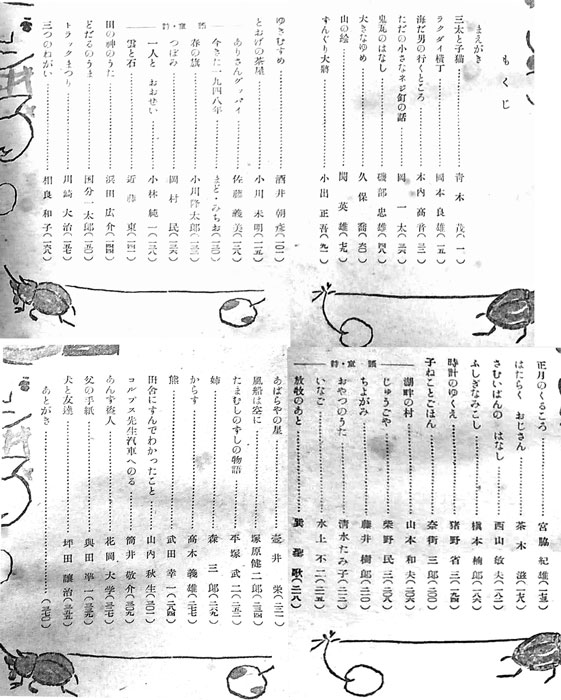 もくじ
まえがき
三太と子猫 青木茂(一)
ラクダイ横丁 岡本良雄(一五)
海だ男の行くところ 木内高音(三一)
ただの小さなネジ釘の話 岡一太(三六)
鬼丸のはなし 磯部忠雄(四八)
大きなゆめ 久保喬(六〇)
山の絵 関英雄(七九)
すんぐり大将 小出正吾(九一)
ゆきむすめ 酒井朝彦(一〇一)
とおげの茶屋 小川未明(一一五)
詩・童謡
ありさんグッバイ 佐藤義美(一二八)
今きた一九四八年 まど・みちお(一三〇)
春の旗 小川隆太郎(一三三)
つぼみ 岡村民(一三六)
一人と おおぜい 小林純一(一三八)
雲と石 近藤東(一四一)
田の神のうた 浜田広介(一四四)
どだるのうま 国分一太郎(一五〇)
トラックまつり 川崎大治(一五七)
三つのねがい 相良和子(一六八)
正月のくるころ 宮脇紀雄(一七五)
はたらく おじさん 茶木滋(一七九)
さむいばんの はなし 西山敏夫(一八二)
ふしぎなみこし 槇本楠郎(一八八)
時計のゆくえ 猪野省三(一九四)
子ねことごはん 奈街三郎(二〇〇)
湖畔の村 山本和夫(二〇六)
詩・童謡
じゅうごや 柴野民三(二〇八)
ちよがみ 藤井樹郎(二一〇)
おやつのうた 清水たみ子(二一二)
いなご 水上不二(二一五)
放牧のあと 巽聖歌(二一八)
あばらやの星 壺井栄(二二一)
風船は空に 塚原健二郎(二三四)
たまむしのずしの物語 平塚武二(二五二)
姉 森三郎(二六九)
からす 高木義雄(二七七)
熊 武田幸一(二八四)
田舎にすんでわかったこと 山内秋生(三〇一)
コルプス先生汽車へのる 筒井敬介(三一〇)
あんず盗人 花岡大学(三二七)
父の手紙 與田凖一(三三九)
犬と友達 坪田譲治(三五九)
あとがき (三七〇)